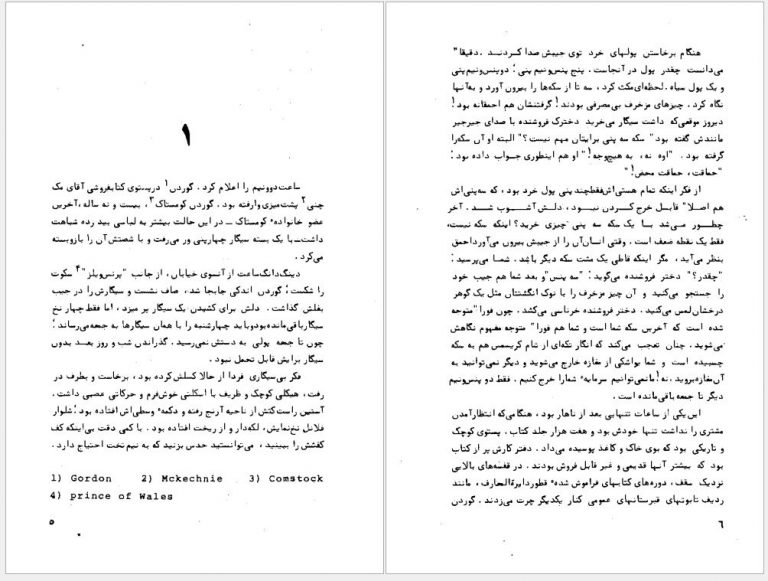 ۱
ساعت‌دوونیم را اعلام کرد. گوردن۱ درپستوی کتابفروشی آقای مک
چنی۲ پشت‌میزی وارفته بود. گوردن کومستاک۳، بیست و نه ساله، آخرین
عضو خانواده‌ٔ کومستاک ــ در این حالت بیشتر به لباسی بید رده شباهت
داشت‌ــ با یک بسته سیگار چهارپنی ور می‌رفت و با شصتش آن را بازوبسته
می‌کرد.
دینگ‌دانگ‌ساعت از آنسوی خیابان، از جانب "پرنس‌ویلز"۴ سکوت
را شکست؛ گوردن اندکی جابجا شد، صاف نشست و سیگارش را در جیب
بغلش گذاشت. دلش برای کشیدن یک سیگار پر میزد، اما فقط‌چهار نخ
سیگارباقی‌مانده‌بودوباید چهارشنبه را با همان سیگارها به جمعه‌می‌رساند؛
چون تا جمعه پولی به دستش نمی‌رسید. گذراندن شب و روز بعد بدون
سیگار برایش قابل تحمل نبود.
فکر بی‌سیگاری فردا از حالا کسلش‌کرده بود، برخاست و بطرف در
رفت، هیکلی کوچک و ظریف با اسکلتی خوش‌فرم و حرکاتی عصبی داشت.
آستین راست‌کتش از ناحیه آرنج رفته و دکمه‌ٔ وسطی‌اش افتاده بود؛ شلوار
فلانل نخ‌نمایش، لکه‌دار و از ریخت افتاده بود. با کمی دقت بی‌اینکه کف
کفشش را ببینید، می‌توانستید حدس بزنید که به نیم‌تخت احتیاج دارد.
1) Gordon 2) Mckechnie 3) Comstock
4) prince of Wales
۵
هنگام برخاستن پولهای خرد توی جیبش صدا کردنـد. دقیقا"
می‌دانست چقدر پول در آنجاست. پنج پنس‌ونیم‌پنی؛ دوپنس‌ونیم‌پنی
و یک پول سیاه. لحظه‌ای‌مکث کرد، سه تا از سکه‌ها را بیرون آورد و به‌آنها
نگاه کرد. چیزهای مزخرف بی‌مصرفی بودند! گرفتنشان هم احمقانه بود!
دیروز موقعی‌که داشت سیگار می‌خرید دخترک فروشنده با صدای جیرجیر
مانندش گفته بود" سکه سه پنی برایتان مهم نیست؟" البته او آن سکه‌را
گرفته بود. "اوه نه، به هیچ‌وجه!" او هم اینطوری جـواب داده بود:
"حماقت، حماقت محض!"
از فکر اینکه تمام هستی‌اش‌فقط‌چند پنی پول خرد بود، که سه‌پنی‌اش
هم اصلا" قابـل خرج کـردن نبـود، دلـش آشـوب شـد. آخر
چطـور می‌شد بـا یـک سکه سه پنی چیزی خرید؟ اینکه سکه نیست،
فقط یک نقطه ضعف است. وقتی انسان‌آن را از جیبش بیرون می‌آورداحمق
بنظر می‌آید، مگر اینکه قاطی یک مشت سکه دیگر باشد. شمـا می‌پرسید:
"چقدر؟" دختر فروشنده می‌گوید: "سه پنس" و بعد شما هم جیب خود
را جستجو می‌کنید و آن چیز مزخرف را با نوک انگشتتان مثل یک گوهر
درخشان‌لمس می‌کنید. دختر فروشنده خرناسی می‌کشد، چون فورا" متوجه
شده است که آخرین سکه شما است و شما هم فورا" متوجه مفهوم نگاهش
می‌شوید. چنان تعجب می‌کند که انگار تکه‌ای از شام کریسمس هم به سکه
چسبیده است و شما یواشکی از مغازه خارج می‌شوید و دیگر نمی‌توانید به
آن‌مغازه‌بروید، نه! مانمی‌توانیم سرمایه‌ٔ شمارا خرج کنیم. فقط دو پنس‌ونیم
دیگر تا جمعه باقی‌مانده‌است.
این‌یکی از ساعات تنهایی بعد از ناهار بود، هنگامی‌که انتظارآمدن
مشتری را نداشت تنها خودش بود و هفت هزار جلد کتاب. پستوی کوچک
و تاریکی بود که بوی خاک و کاغذ پوسیده می‌داد. دفتر کارش پر از کتاب
بود که بیشتر آنها قدیمی و غیر قابل فروش بودند. در قفسه‌های بالایی
نزدیک سقف، دوره‌های کتابهای فراموش شده‌ٔ قطوردایرةالمعارف، مانند
ردیف تابوتهای قبرستانهای عمومی کنار یکدیگر چرت می‌زدند. گوردن
۶